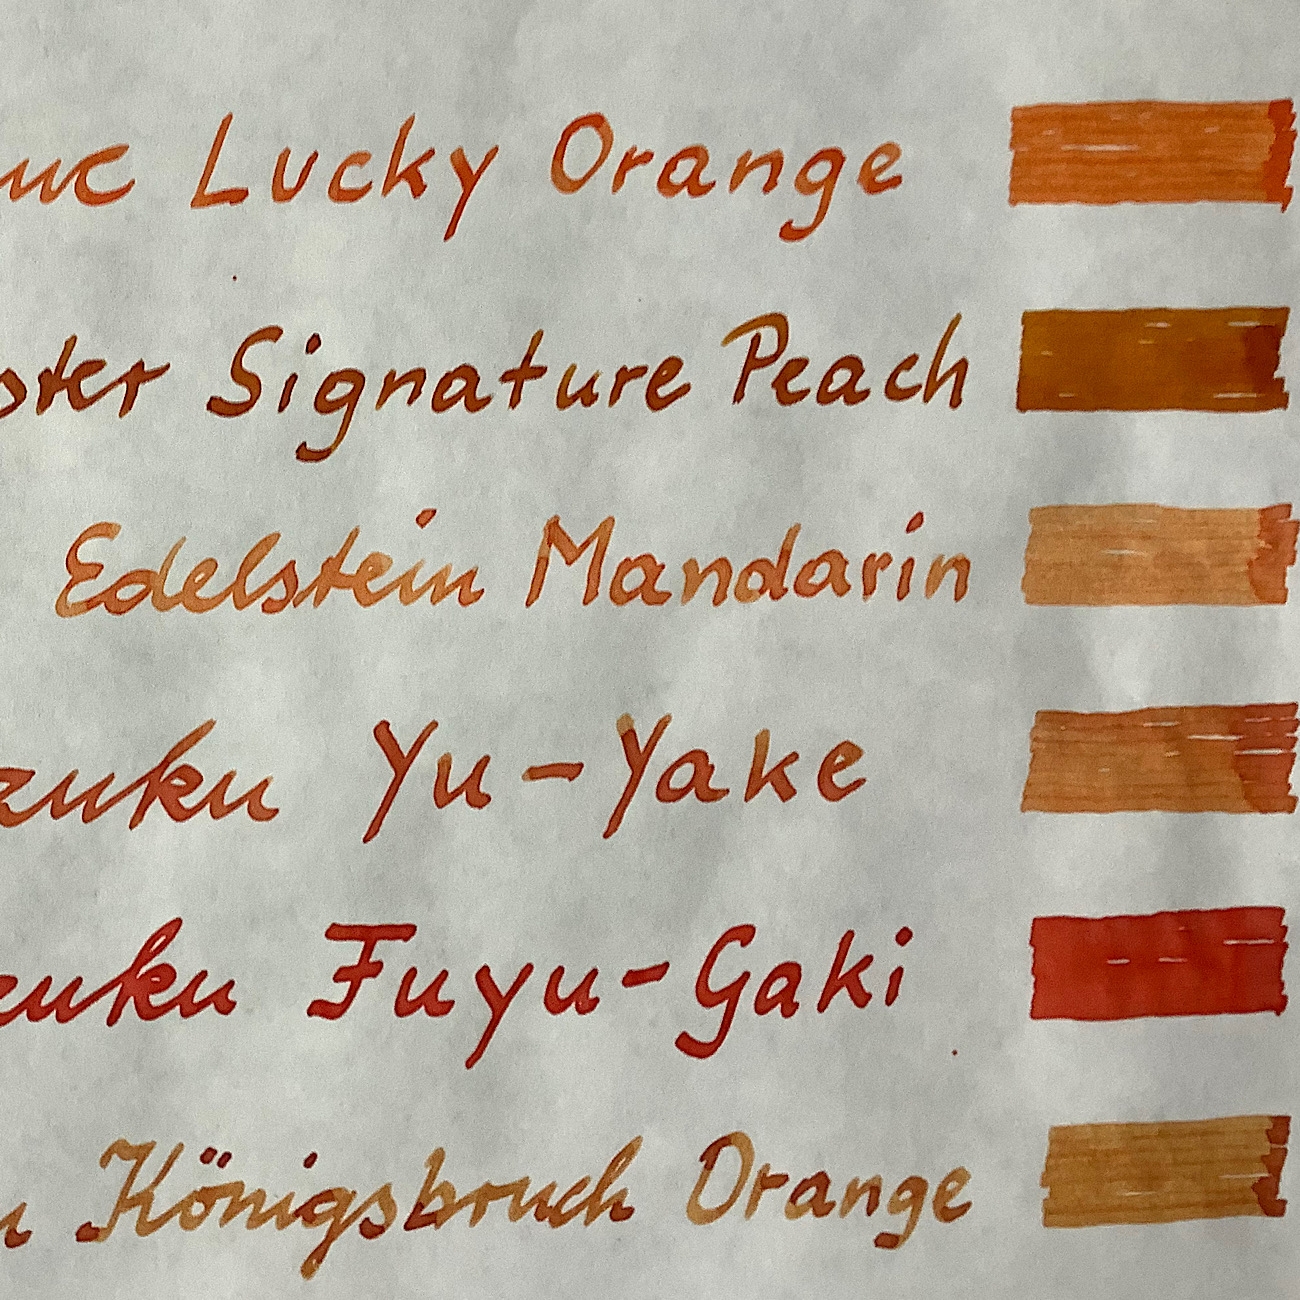 uc Lucky Orange
ster Signature Peach
Edelstein Mandarin
zuku Yu-Yake
zuku Fuyu-Gaki
Königsbruch Orange